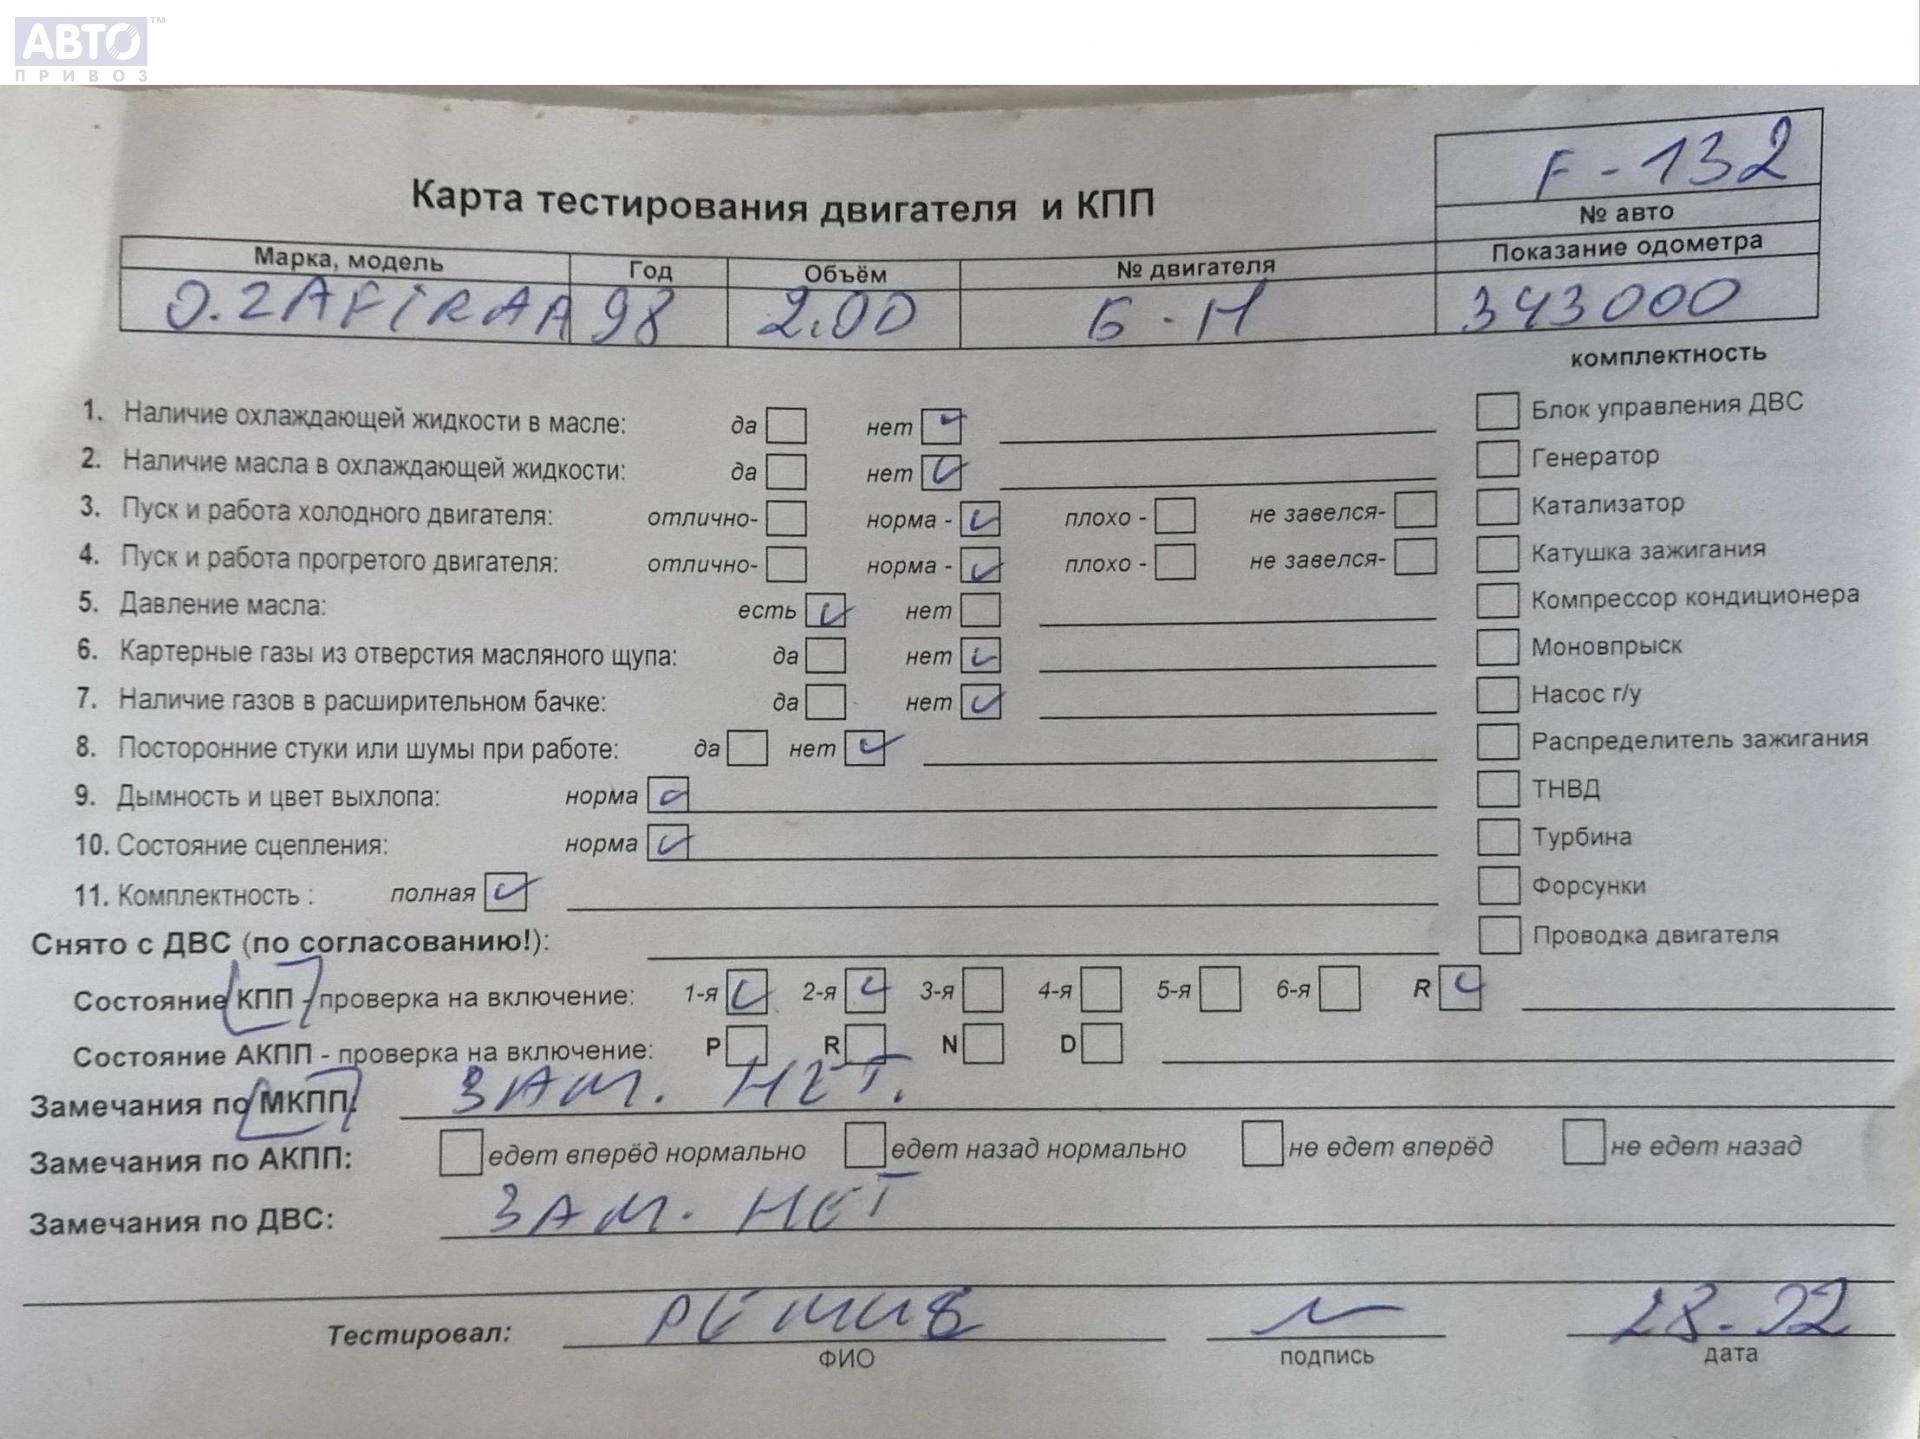 АВТО™
ПРИВОЗ
F-132
№ авто
Карта тестирования двигателя и КПП
Марка, модель Год Объём № двигателя Показание одометра
O.ZAFIRAA 98 2.0D Б-Н 343000
комплектность
1. Наличие охлаждающей жидкости в масле: да нет Блок управления ДВС
2. Наличие масла в охлаждающей жидкости: да нет Генератор
3. Пуск и работа холодного двигателя: отлично- норма - плохо - не завелся- Катализатор
4. Пуск и работа прогретого двигателя: отлично- норма - плохо - не завелся- Катушка зажигания
5. Давление масла: есть нет Компрессор кондиционера
6. Картерные газы из отверстия масляного щупа: да нет Моновпрыск
7. Наличие газов в расширительном бачке: да нет Насос г/у
8. Посторонние стуки или шумы при работе: да нет Распределитель зажигания
9. Дымность и цвет выхлопа: норма ТНВД
10. Состояние сцепления: норма Турбина
11. Комплектность : полная Форсунки
Снято с ДВС (по согласованию!): Проводка двигателя
Состояние КПП - проверка на включение: 1-я 2-я 3-я 4-я 5-я 6-я R
Состояние АКПП - проверка на включение: P R N D
Замечания по МКПП: ЗАМ. НЕТ.
Замечания по АКПП: едет вперёд нормально едет назад нормально не едет вперёд не едет назад
Замечания по ДВС: ЗАМ. НЕТ
Тестировал: 28.02
ФИО подпись дата